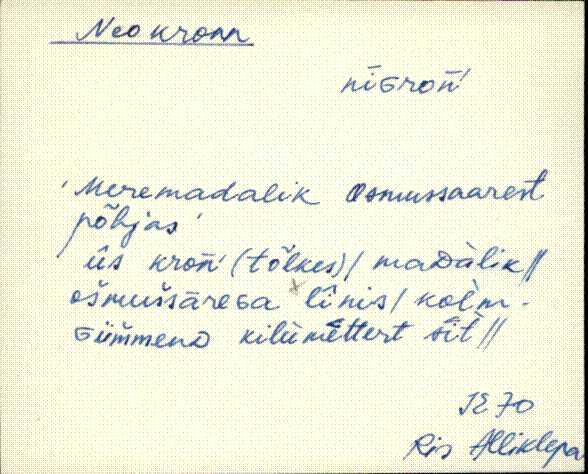 Neo kronn
niɢroń
'Meremadalik Osmussaarest
põhjas'
üs kroń (tõlkes)/ maᴅàlik//
ošmuššāreɢa līnis/ kolm-
ɢümmenᴅ kilumēttert sīt//
JE 70
Ris Alliklepa